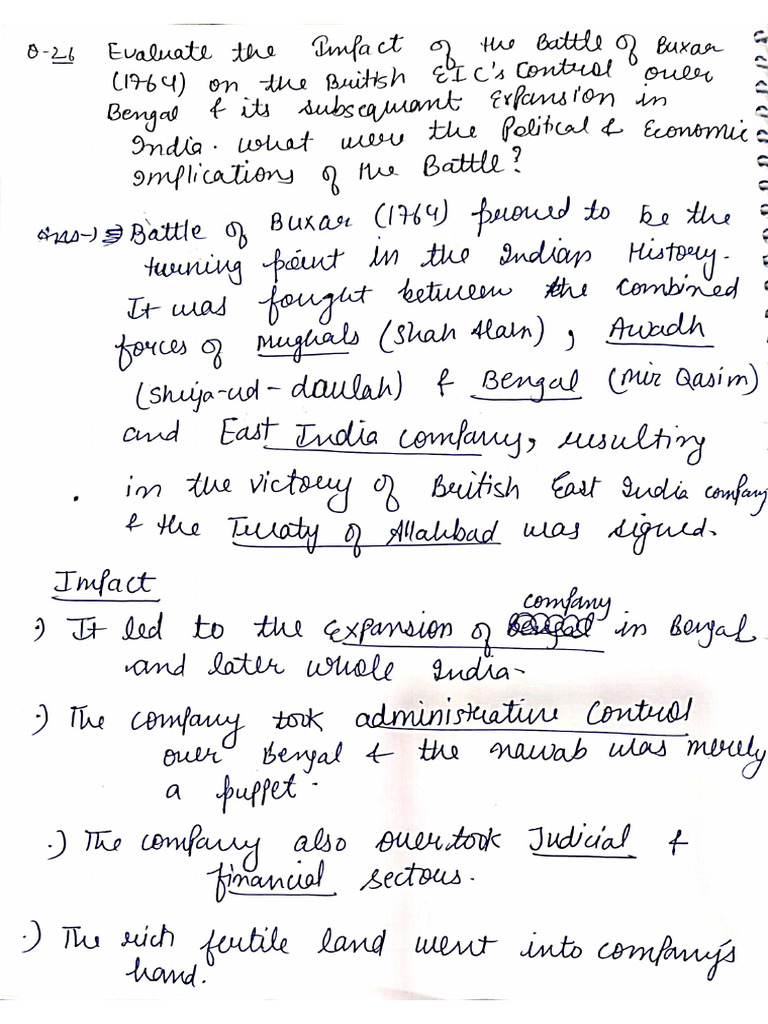 Q-26 Evaluate the Impact of the Battle of Buxar
(1764) on the British EIC's control over
Bengal & its subsequant Expansion in
India. what were the Political & Economic
implications of the Battle?
Ans-) Battle of Buxar (1764) proved to be the
turning point in the Indian History.
It was fought between the combined
forces of Mughals (Shah Alam), Awadh
(Shuja-ud-daulah) & Bengal (Mir Qasim)
and East India company, resulting
in the victory of British East India company
& the Treaty of Allahbad was signed.
Impact
.) It led to the expansion of company in Bengal
and later whole India-
.) The company took administrative control
over Bengal & the nawab was merely
a puppet.
.) The company also overtook Judicial &
financial sectors.
.) The rich fertile land went into company's
hand.